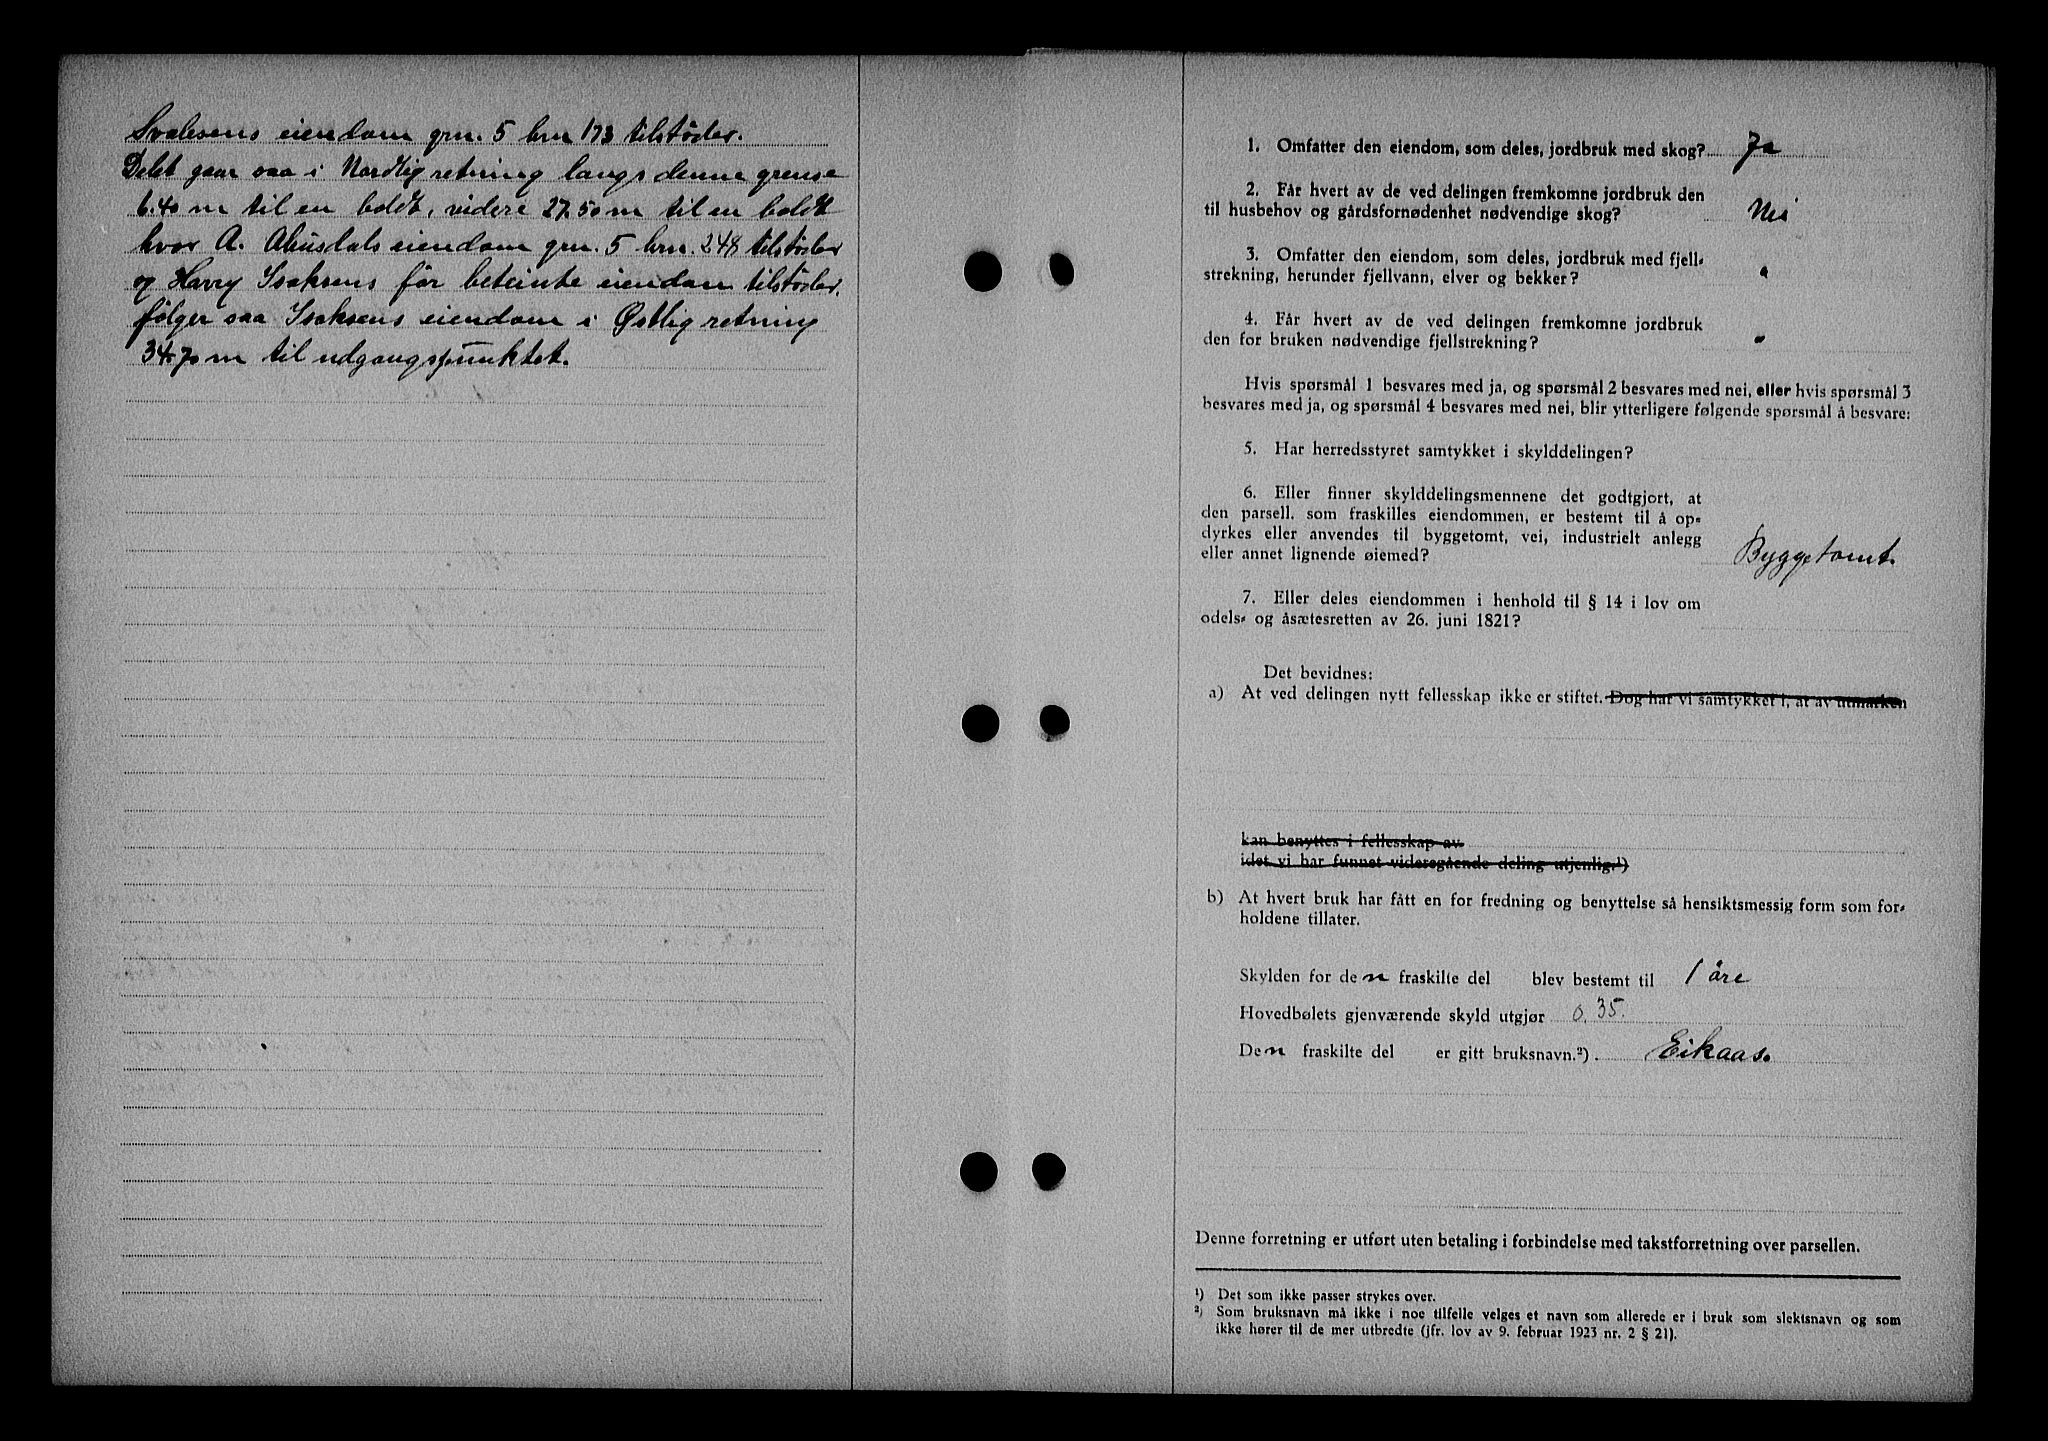 Svalesens eiendom grn. 5 brn 173 tilstöder.
Delet gaar saa i Nordlig retning langs denne grense
6.40 m til en boldt, videre 27.50 m til en boldt
hvor A. Ahusdals eiendom grn. 5 brn. 248 tilstöder
og Harry Isaksens før beteinte eiendom tilstöder.
følger saa Isaksens eiendom i Østlig retning
34.70 m til udgangspunktet.
1. Omfatter den eiendom, som deles, jordbruk med skog? Ja
2. Får hvert av de ved delingen fremkomne jordbruk den
til husbehov og gårdsfornødenhet nødvendige skog? Nei
3. Omfatter den eiendom, som deles, jordbruk med fjell-
strekning, herunder fjellvann, elver og bekker? "
4. Får hvert av de ved delingen fremkomne jordbruk
den for bruken nødvendige fjellstrekning? "
Hvis spørsmål 1 besvares med ja, og spørsmål 2 besvares med nei, eller hvis spørsmål 3
besvares med ja, og spørsmål 4 besvares med nei, blir ytterligere følgende spørsmål å besvare:
5. Har herredsstyret samtykket i skylddelingen?
6. Eller finner skylddelingsmennene det godtgjort, at
den parsell, som fraskilles eiendommen, er bestemt til å op-
dyrkes eller anvendes til byggetomt, vei, industrielt anlegg
eller annet lignende øiemed? Byggetomt.
7. Eller deles eiendommen i henhold til § 14 i lov om
odels- og åsætesretten av 26. juni 1821?
Det bevidnes:
a) At ved delingen nytt fellesskap ikke er stiftet. Dog har vi samtykket i, at av utmarken
kan benyttes i fellesskap av
idet vi har funnet videregående deling utjenlig.¹)
b) At hvert bruk har fått en for fredning og benyttelse så hensiktsmessig form som for-
holdene tillater.
Skylden for den fraskilte del blev bestemt til 1 öre
Hovedbølets gjenværende skyld utgjør 0.35.
Den fraskilte del er gitt bruksnavn.²) Eikaas.
Denne forretning er utført uten betaling i forbindelse med takstforretning over parsellen.
¹) Det som ikke passer strykes over.
²) Som bruksnavn må ikke i noe tilfelle velges et navn som allerede er i bruk som slektsnavn og som
ikke hører til de mer utbredte (jfr. lov av 9. februar 1923 nr. 2 § 21).